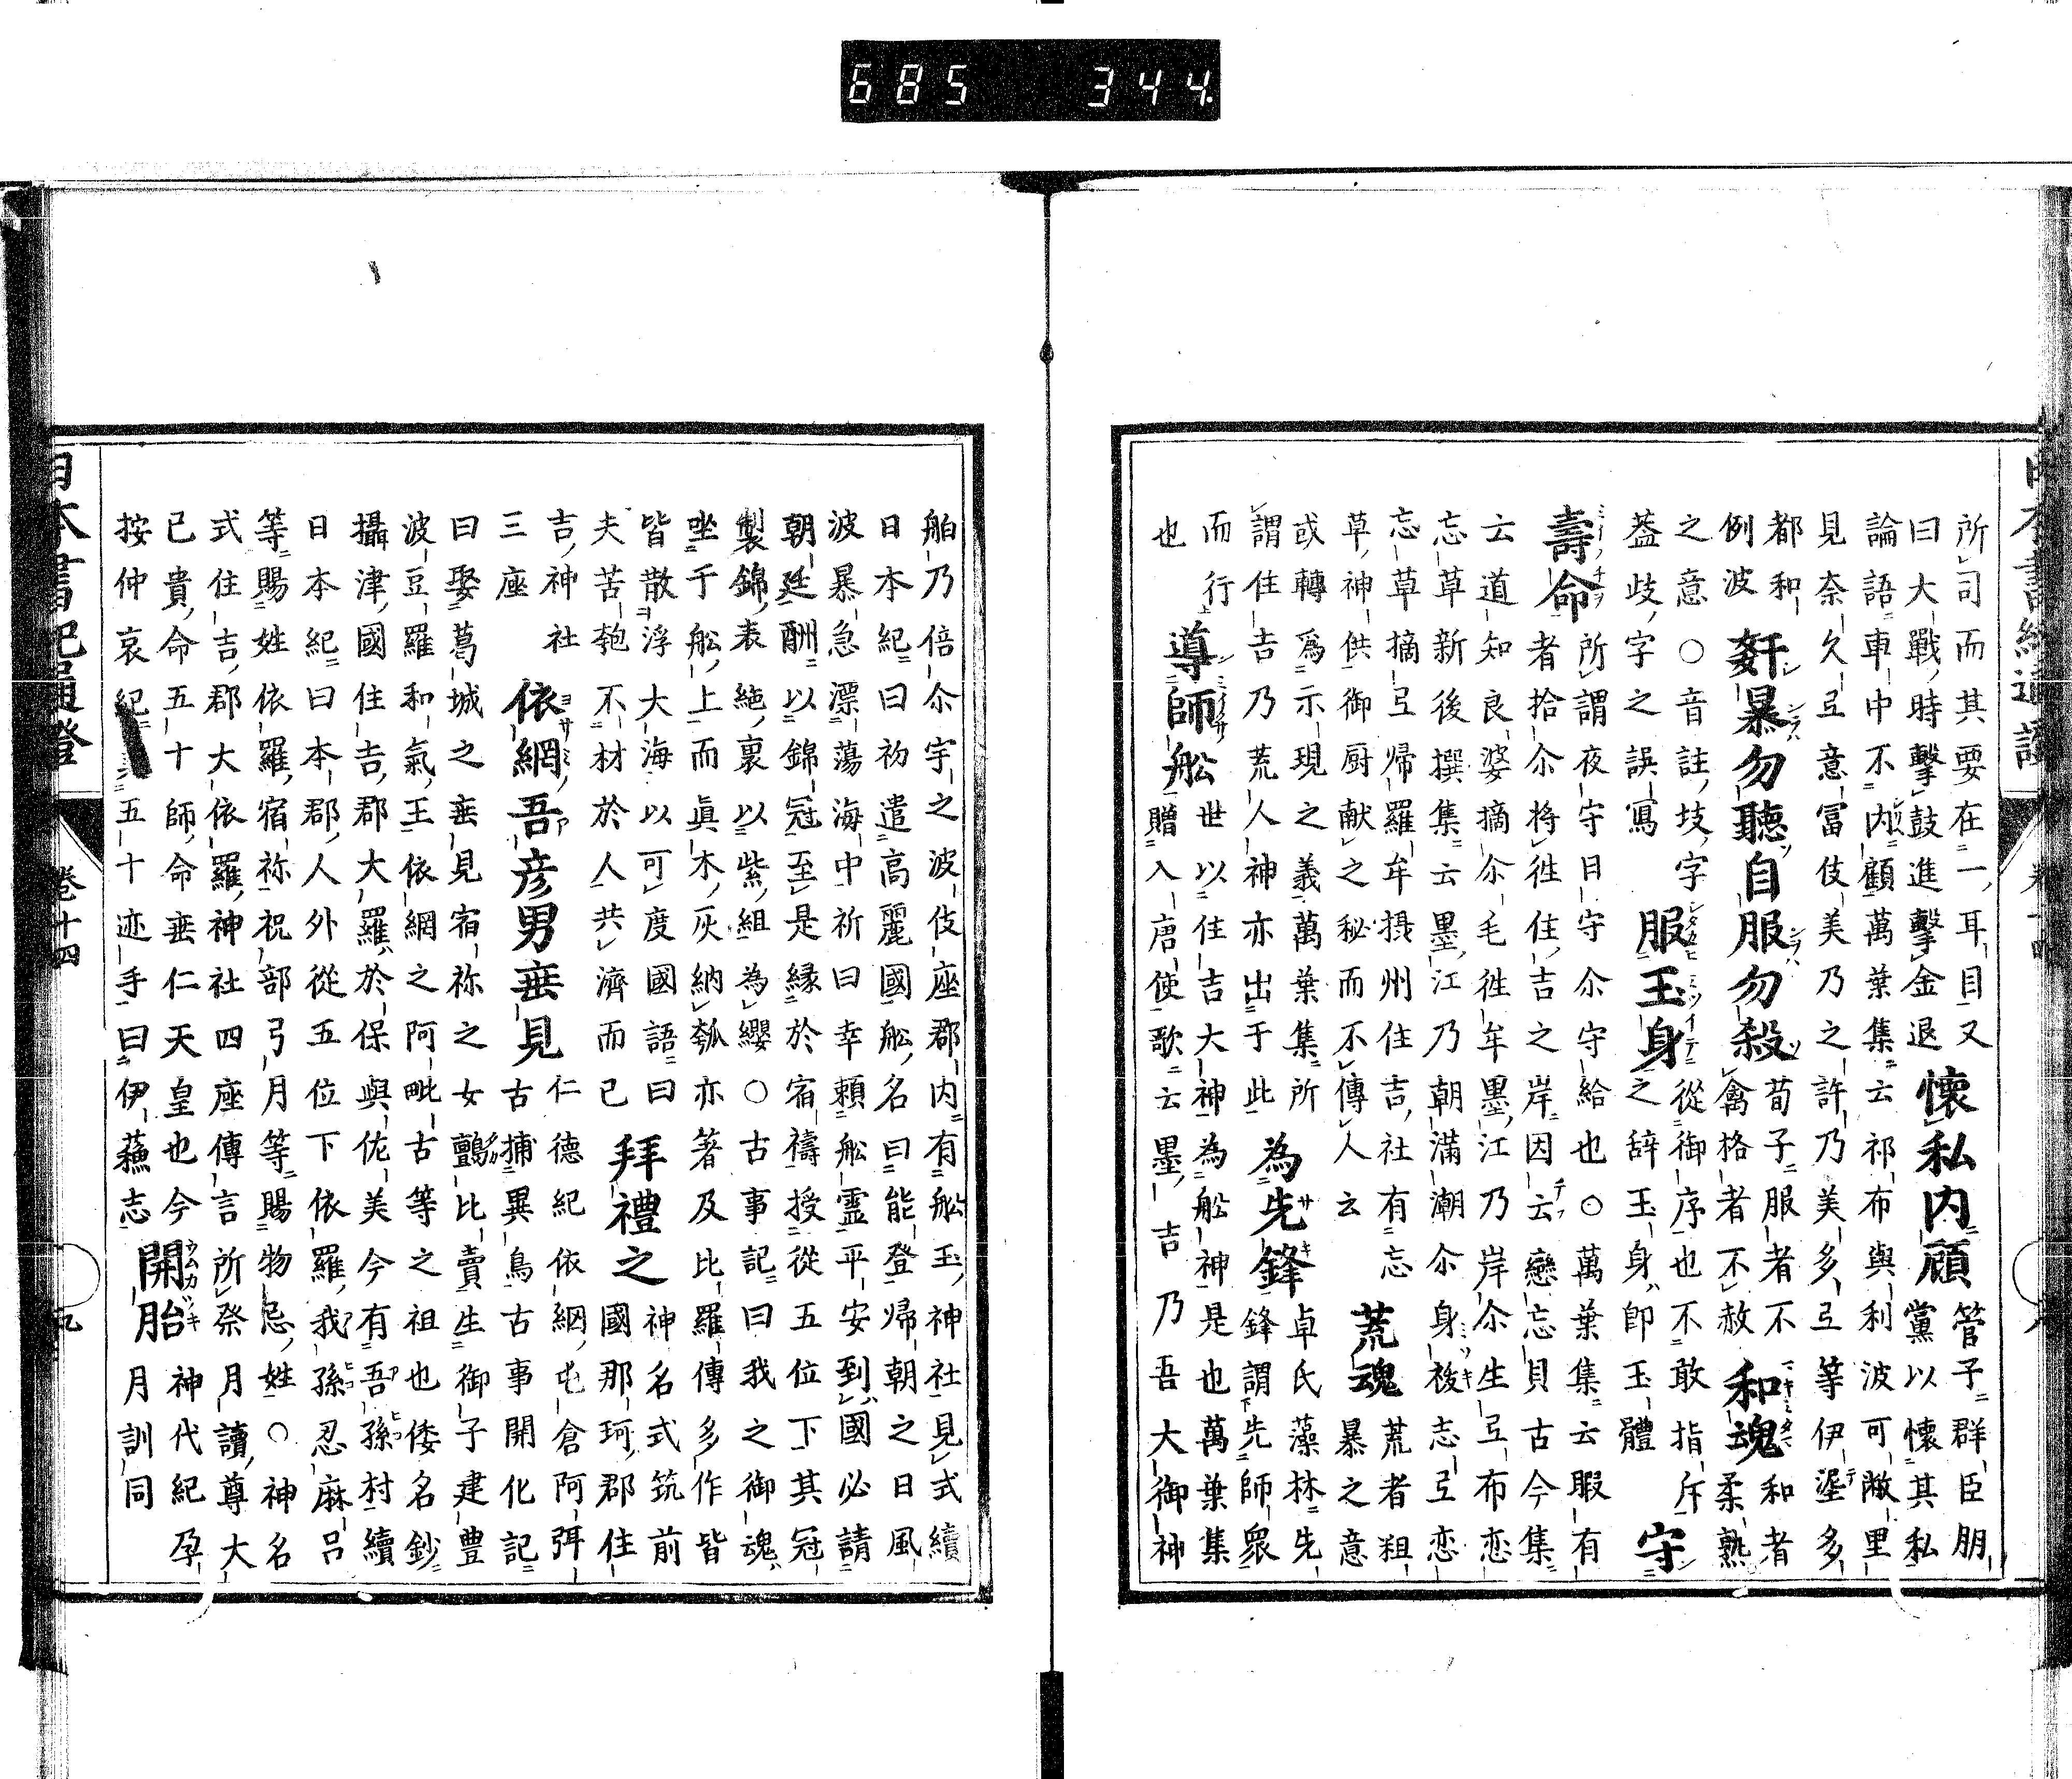 685 344
日本書紀通證
所司而其要在一耳目又
曰大戰時擊鼓進擊金退
懷私内顧
管子群臣朋
黨以懷其私
論語車中不内顧萬葉集云祁布與利波可敝里
見奈久弖意冨伎美乃之許乃美多弖等伊埿多
都和
例波
姧暴勿聽自服勿殺
荀子服者不
禽格者不赦
和魂
和者
柔熟
之意○音註攱字
葢歧字之誤寫
服玉身
從御序也不敢指斥
之辞玉身即玉體
守
壽命
所謂夜守日守尒守給也○萬葉集云暇有
者拾尒将徃住吉之岸因云戀忘貝古今集
云道知良婆摘尒毛徃牟墨江乃岸尒生弖布恋
忘草新後撰集云墨江乃朝満潮尒身祓志弖恋
忘草摘弖帰羅牟摂州住吉社有忘
草神供御厨献之秘而不傳人云
荒魂
荒者粗
暴之意
或轉為示現之義萬葉集所
謂住吉乃荒人神亦出于此
為先鋒
卓氏藻林先
鋒謂先師衆
而行
也
導師舩
世以住吉大神為舩神是也萬葉集
贈入唐使歌云墨吉乃吾大御神
舶乃倍尒宇之波伎座郡内有舩玉神社見式續
日本紀曰初遣高麗國舩名曰能登歸朝之日風
波暴急漂蕩海中祈曰幸頼舩霊平安到國必請
朝廷酬以錦冠至是縁於宿禱授從五位下其冠
製錦表絁裏以紫組為纓○古事記曰我之御魂
坐于舩上而眞木灰納瓠亦著及比羅傳多作皆
皆散浮大海以可度國語曰
夫苦匏不材於人共濟而已
拜禮之
神名式筑前
國那珂郡住
吉神社
三座
依網吾彦男垂見
仁德紀依網屯倉阿弭
古捕異鳥古事開化記
曰娶葛城之垂見宿祢之女鸇比賣生御子建豊
波豆羅和氣王依網之阿毗古等之祖也倭名鈔
攝津國住吉郡大羅於保與佐美今有吾孫村續
日本紀曰本郡人外從五位下依羅我孫忍麻呂
等賜姓依羅宿祢祝部弓月等賜物忌姓○神名
式住吉郡大依羅神社四座傳言所祭月讀尊大
己貴命五十師命垂仁天皇也今
按仲哀紀五十迹手曰伊蘓志
開胎
神代紀孕
月訓同
日本書紀通證 卷十四 九